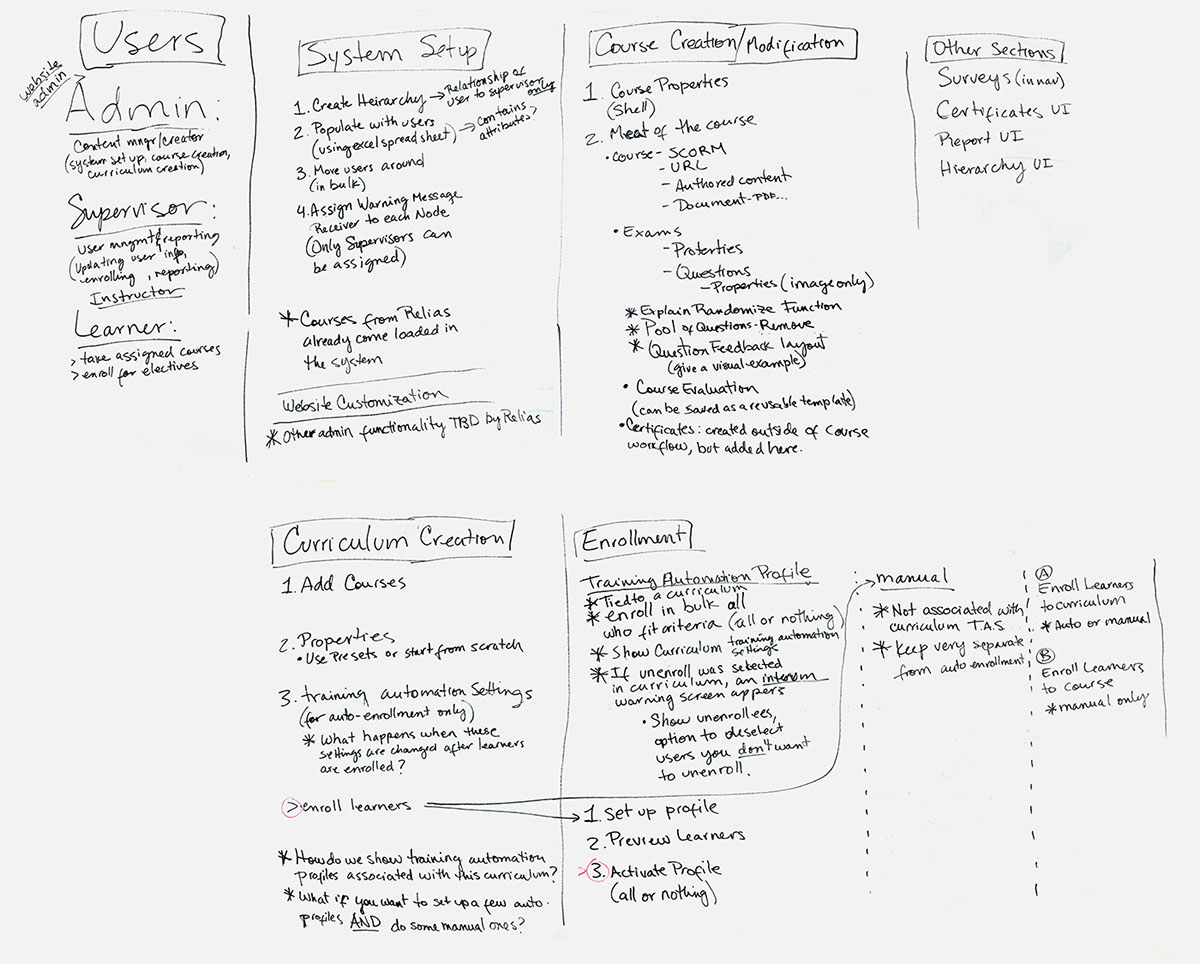 Users
website
admin
Admin:
Content mngr/creator
(system set up, course creation,
curriculum creation)
Supervisor:
User mngmt & reporting
(updating user info,
enrolling, reporting)
Instructor
Learner:
> take assigned courses
> enroll for electives
System Setup
1. Create Heirarchy → Relationship of
user to supervisor
only
2. Populate with users
(using excel spreadsheet) → contains
attributes?
3. Move users around
(in bulk)
4. Assign Warning Message
Receiver to each Node
(Only Supervisors can
be assigned)
* Courses from Relias
already come loaded in
the system
Website Customization
* Other admin functionality TBD by Relias
Course Creation/Modification
1. Course Properties
(Shell)
2. Meat of the course
• Course - SCORM
- URL
- Authored content
- Document - PDF...
• Exams
- Proterties
- Questions
- Properties (image only)
* Explain Randomize Function
* Pool of Questions - Remove
* Question Feedback layout
(give a visual example)
• Course Evaluation
(can be saved as a reusable template)
• Certificates: created outside of course
workflow, but added here.
Other Sections
Surveys (in nav)
Certificates UI
Report UI
Hierarchy UI
Curriculum Creation
1. Add Courses
2. Properties
• Use Presets or start from scratch
3. training automation Settings
(for auto-enrollment only)
* What happens when these
settings are changed after learners
are enrolled?
> enroll learners
* How do we show training automation
profiles associated with this curriculum?
* What if you want to set up a few auto-
profiles AND do some manual ones?
Enrollment
Training Automation Profile
* Tied to a curriculum
* enroll in bulk all
who fit criteria (all or nothing)
* Show Curriculum training automation
settings
* If unenroll was selected
in curriculum, an interem
warning screen appers
• Show unenrollees,
option to deselect
users you don't want
to unenroll.
1. Set up profile
2. Preview Learners
> 3. Activate Profile
(all or nothing)
manual
* Not associated with
curriculum T.A.S
* Keep very separate
from auto enrollment
A
Enroll Learners
to curriculum
* Auto or manual
B
Enroll Learners
to Course
* manual only